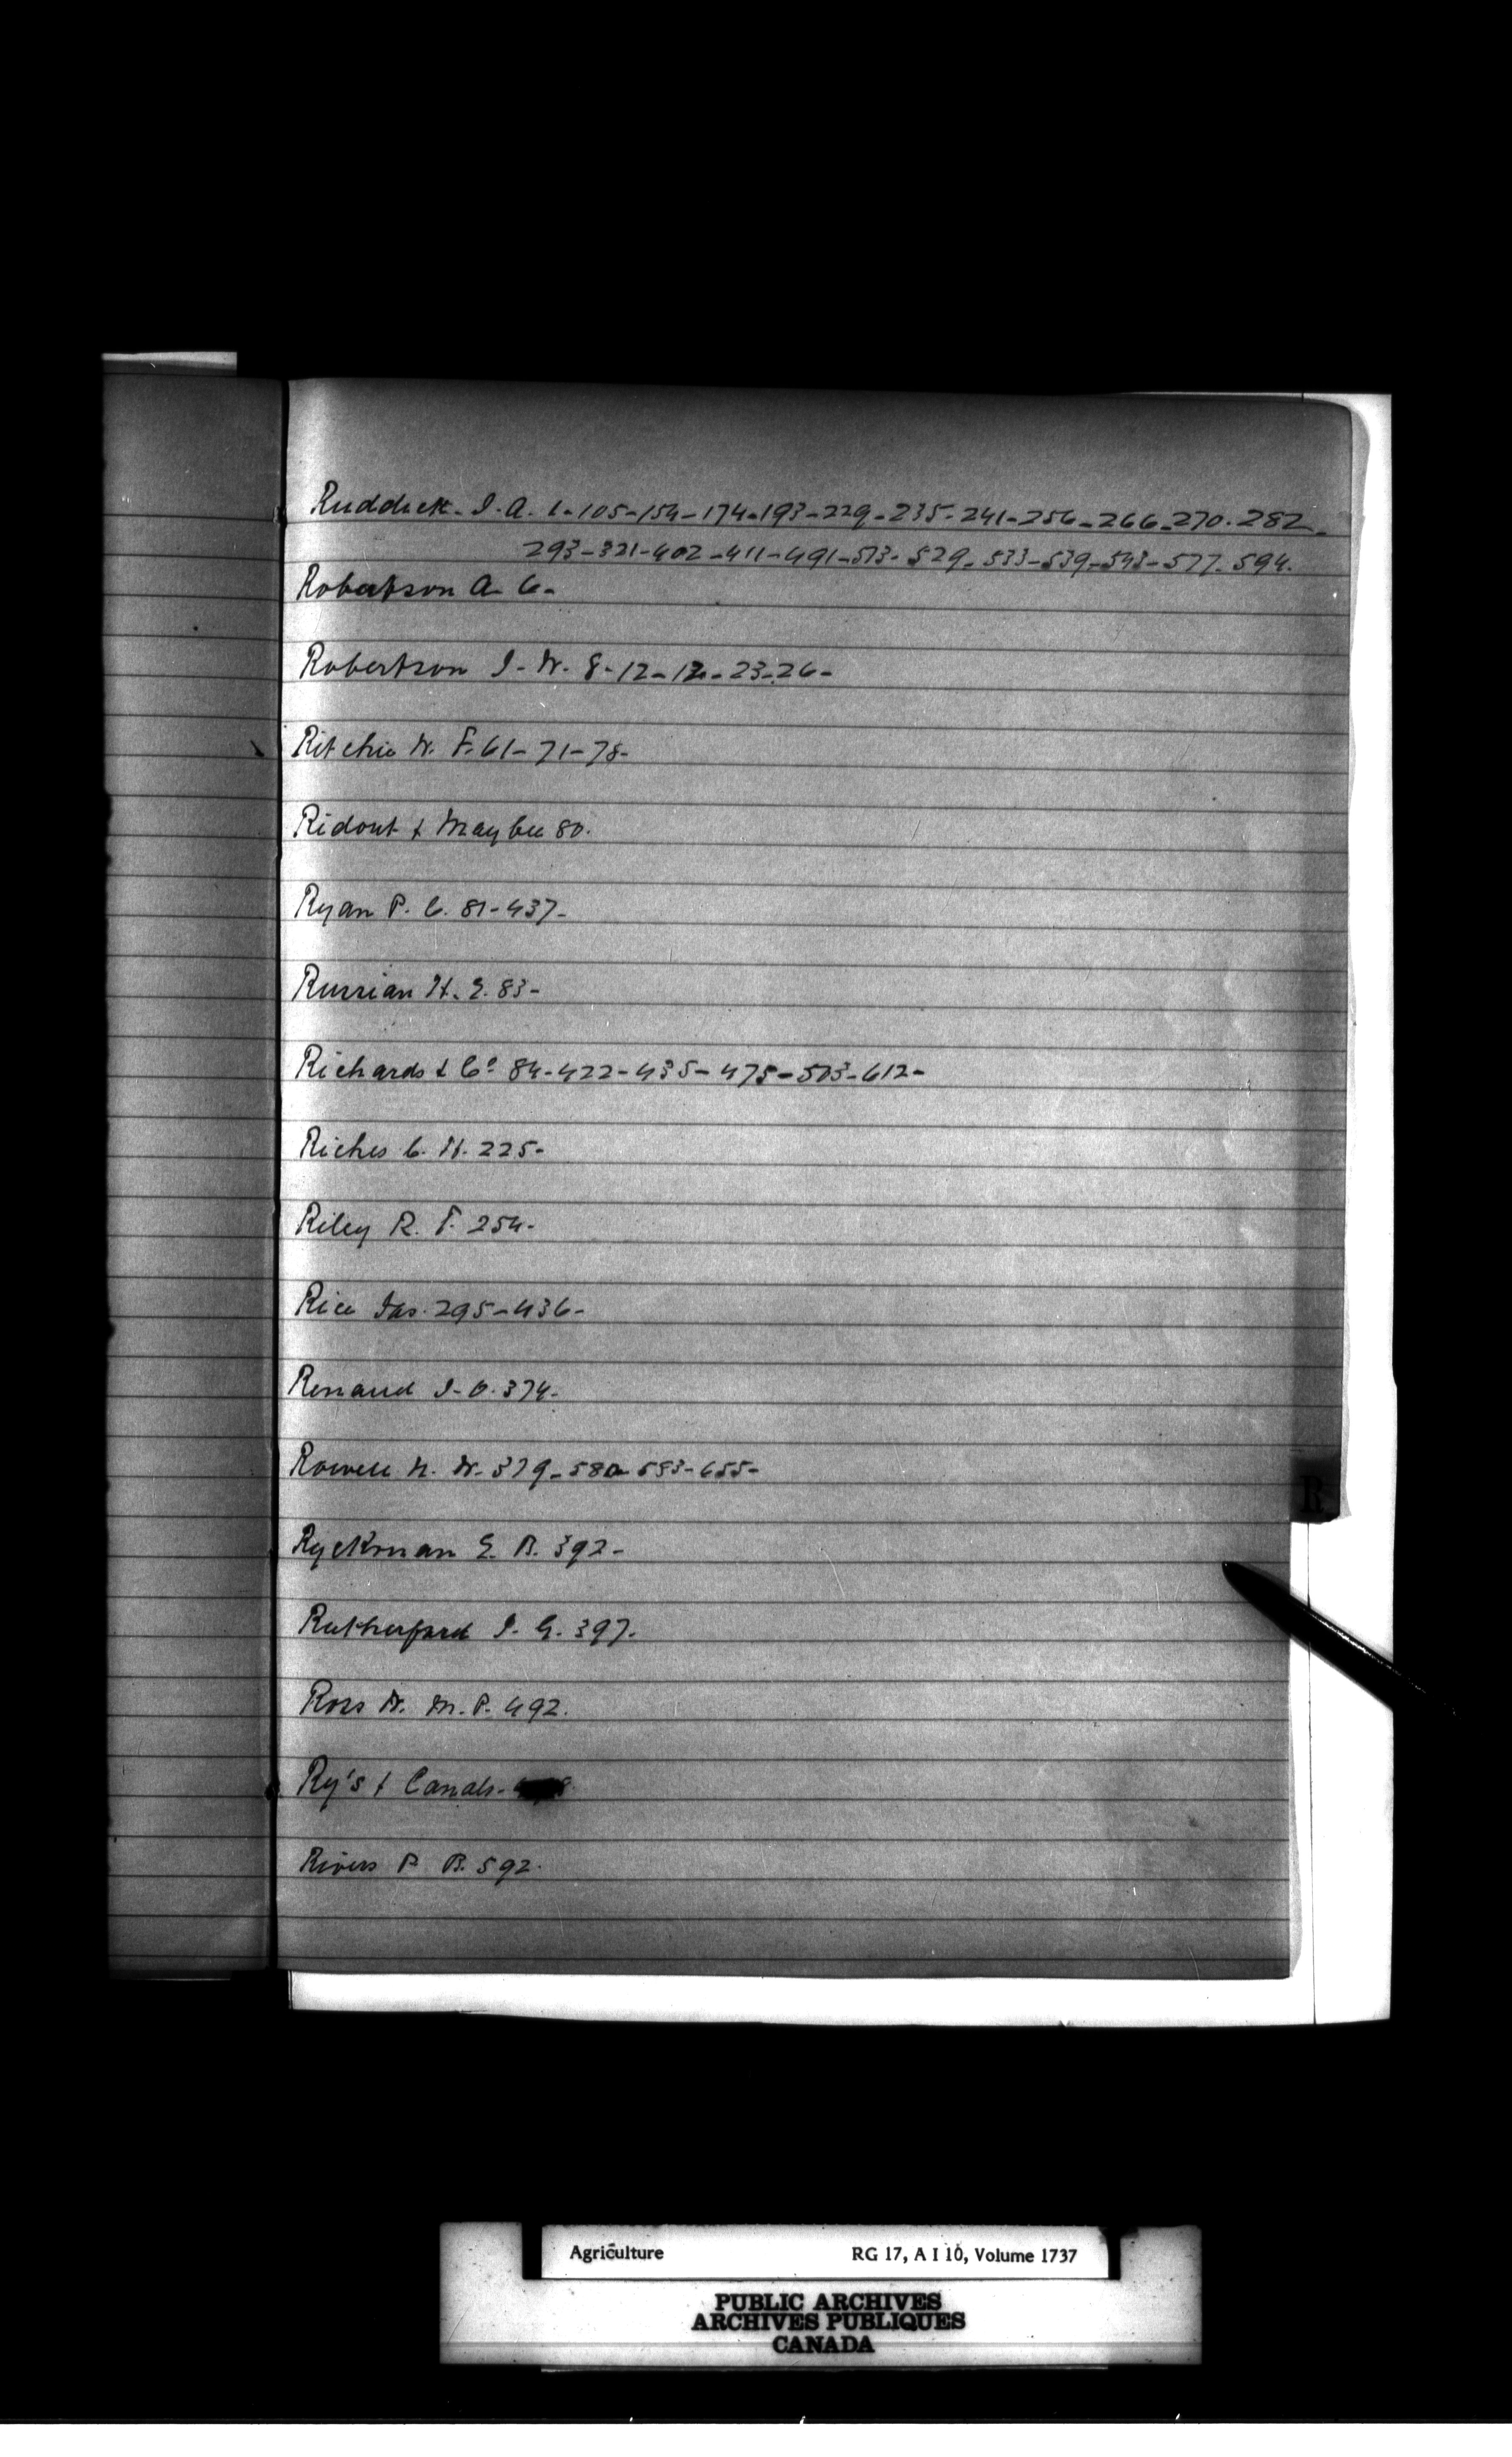 Ruddick. J. A. 1-105-154-174-193-229-235-241-256-266-270-282-
293-321-402-411-491-513-529-533-539-543-577-594.
Robertson A. C-
Robertson J. W. 8-12-12-23-26-
Ritchie W. F. 61-71-78-
Ridout & Maybee 80.
Ryan P. C. 81-437-
Russian H. E. 83-
Richards & Co 84-422-435-475-513-612-
Riches C. H. 225-
Riley R. T. 254-
Rice Jas. 295-436-
Renaud J. O. 374-
Rowell N. W. 379-580-583-655-
Ryckman E. B. 392-
Rutherford J. G. 397.
Ross W. M. P. 492.
Ry's & Canals-
Rivers P. B. 592.
R
Agriculture RG 17, A I 10, Volume 1737
PUBLIC ARCHIVES
ARCHIVES PUBLIQUES
CANADA